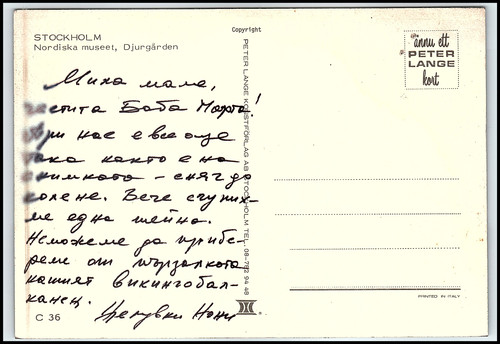 STOCKHOLM
Nordiska museet, Djurgården
Copyright
PETER LANGE KONSTFÖRLAG AB STOCKHOLM TEL. 08-782 94 48
ännu ett
PETER
LANGE
kort
Мила мама,
честита Баба Марта!
При нас е все още
така както е на
снимката – сняг до
колене. Вече счупих-
ме една шейна.
Неможеме да прибе-
реме от пързалката
нашият викингобал-
канец.
Целувки Нони
C 36
PRINTED IN ITALY